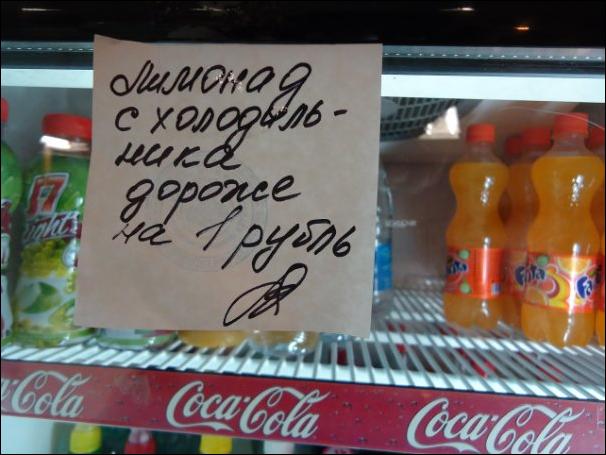 Лимонад
с холодиль-
ника
дороже
на 1 рубль
Light
Fanta
Fanta
Coca-Cola
Coca-Cola
Coca-Cola